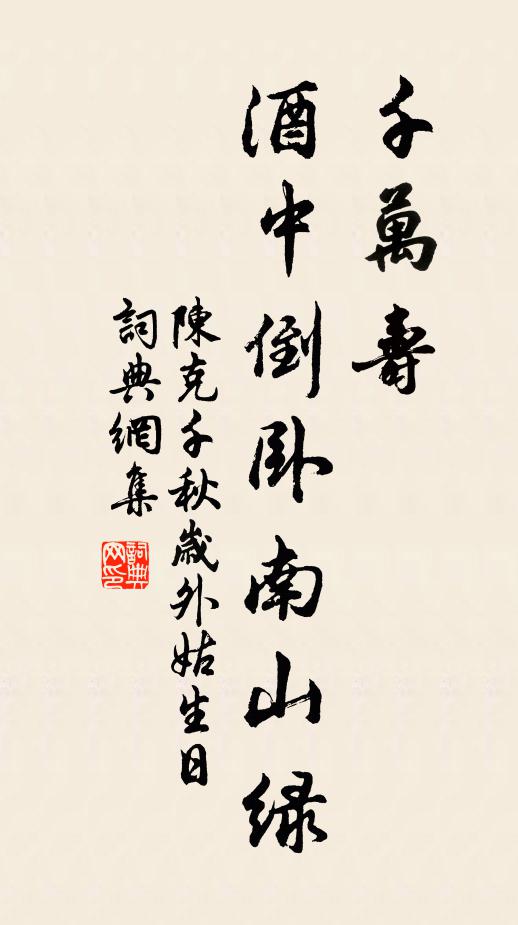 千萬壽
酒中倒卧南山緑
陳克千秋歲外姑生日
詞典網集
詞典網印